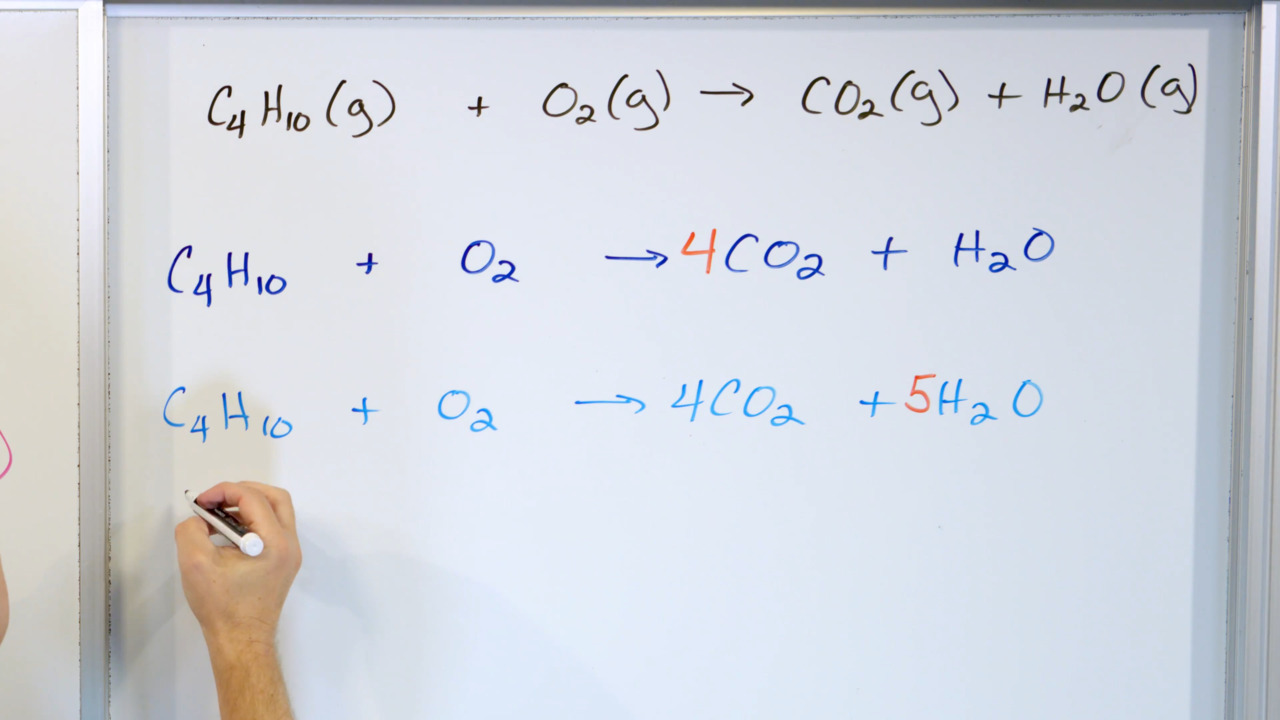 C₄H₁₀(g) + O₂(g) → CO₂(g) + H₂O(g)
C₄H₁₀ + O₂ → 4CO₂ + H₂O
C₄H₁₀ + O₂ → 4CO₂ + 5H₂O